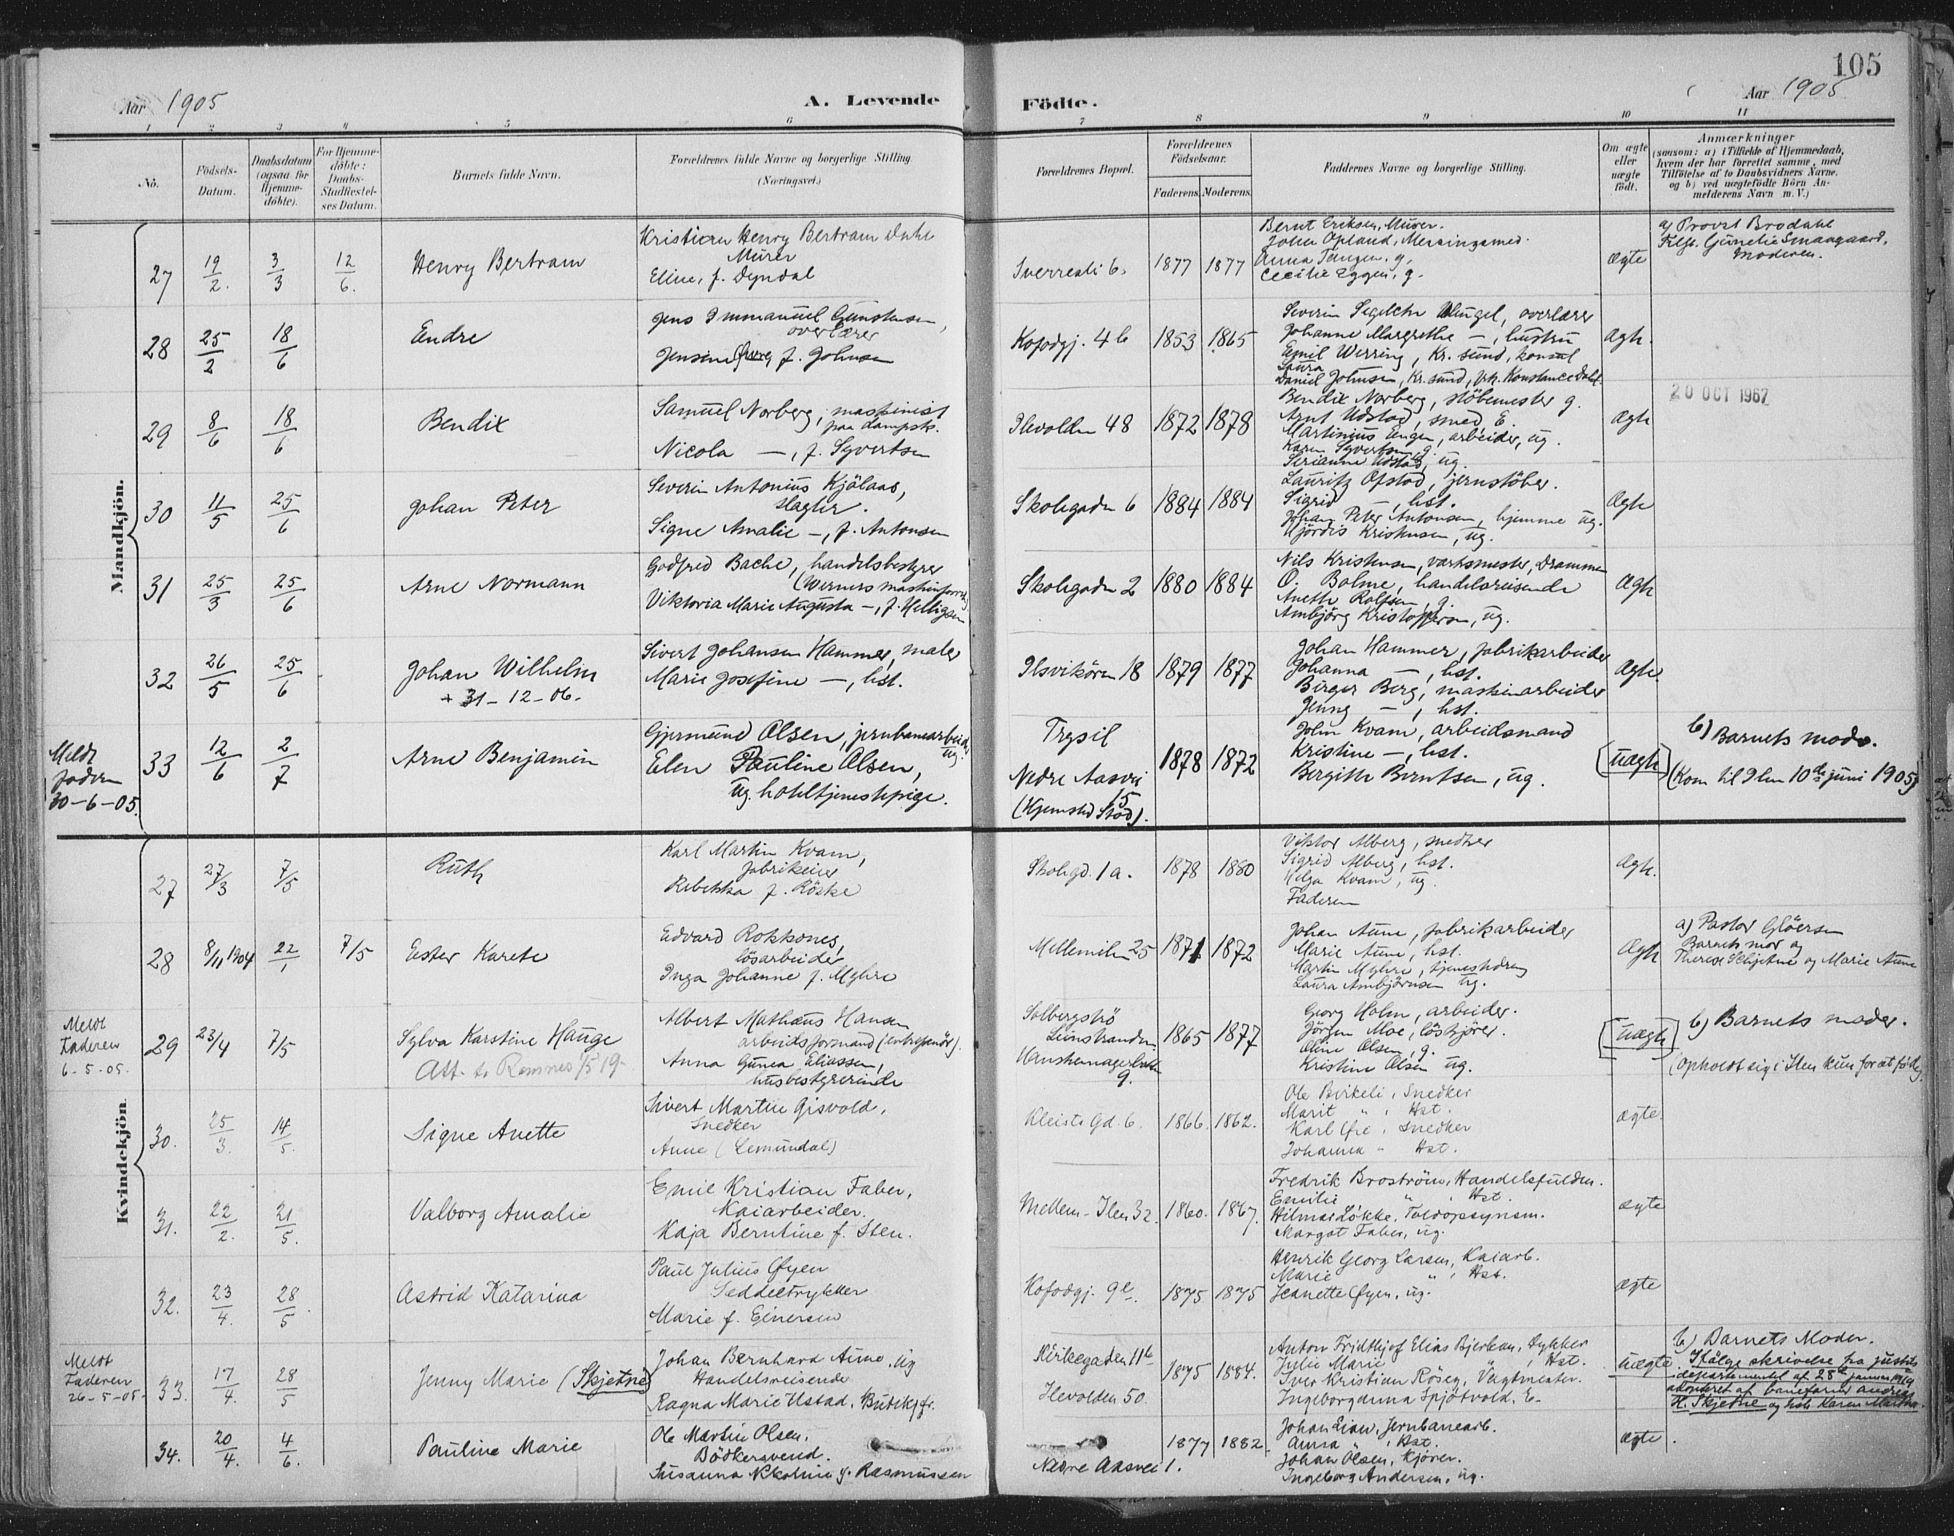 105
Aar 1905
A. Levende
Födte.
Aar 1905
1 2 3 4 5 6 7 8 9 10 11
No.
Födsels-
Datum.
Daabsdatum
(ogsaa for
Hjemme-
döbte).
For Hjemme-
döbte:
Daabs-
Stadfæstel-
ses Datum.
Barnets fulde Navn.
Forældrenes fulde Navne og borgerlige Stilling.
(Næringsvei.)
Forældrenes Bopæl.
Forældrenes
Födselsaar.
Faderens. Moderens.
Faddernes Navne og borgerlige Stilling.
Om ægte
eller
uægte
födt.
Anmærkninger
(saasom: a) i Tilfælde af Hjemmedaab,
hvem der har forrettet samme, med
Tilföielse af to Daabsvidners Navne,
og b) ved uægtefödte Börn An-
melderens Navn m. V.)
Mandkjön.
27
19/2.
3/3
12/6.
Henry Bertram
Kristian Henry Bertram Dahl
Murer
Eline, f. Dyndal
Sverresli 6.
1877 1877
Bernt Eriksen, Murer.
Johan Opland, Messingsmed.
Anna Tangen, g.
Cecilie Eggen, g.
Ægte
a) Provst Brodahl
Moderen.
28
25/2
18/6
Endre
Jens Immanuel Gunstensen,
overlærer
Jensine f. Johnsen
Kofodgj. 4b
1853 1865
overlærer
Johanne Margrethe —, hustru
Emil Werring, Kr. sund, konsul
Laura
Daniel Johnsen, Kr. sund, frk. Konstance Dahl.
Ægte.
20 OCT 1967
29
8/6
18/6
Bendix
Samuel Norberg, maskinist
paa dampsk.
Nicola —, f. Syvertsen
Ilevolden 48
1872 1878
Bendix Norberg, støbemester g.
Arnt Udstad, smed, E.
Martinius Engen, arbeider, ug.
Karen Syvertsen, g.
Serianne Udstad, ug.
Ægte
30
11/5
25/6
Johan Peter
Severin Antonius Kjölaas,
slagter.
Signe Amalie —, f. Antonsen
Skolegaden 6
1884 1884
Lauritz Ofstad, jernstöber.
Sigrid —, hst.
Johan Peter Antonsen, hjemme ug.
Hjördis Kristensen, ug.
Ægte
31
25/3
25/6
Arne Normann
Godfred Bache, handelsbestyrer
(Werners maskinforretn.)
Viktoria Marie Augusta —, f. Helligsen
Skolegaden 2
1880 1884
Nils Kristensen, værksmester, Drammen
O. Bolme, handelsreisende
Anette Rolfsen, g.
Ambjörg Kristoffersen, ug.
Ægte
32
26/5
25/6
Johan Wilhelm
+ 31-12-06.
Sivert Johansen Hammer, maler
Marie Josefine —, hst.
Ilsvikören 18
1879 1877
Johan Hammer, fabrikarbeider
Johanna —, hst.
Birger Berg, maskinarbeider
Jenny —, hst.
Ægte.
Meldt
faderen
30-6-05.
33
12/6
2/7
Arne Benjamin
Gjermund Olsen, jernbanearbeider
ug.
Elen Pauline Olsen,
ug. hoteltjenestepige.
Trysil
Nedre Aasvei
15
(Hjemsted Stod).
1878 1872
John Kvam, arbeidsmand
Kristine —, hst.
Bergitte Berntsen, ug.
[uægte]
b) Barnets moder.
(Kom til Ilen 10de juni 1905)
Kvindekjön.
27
27/3
7/5
Ruth
Karl Martin Kvam,
fabrikeier
Rebekka f. Röske
Skolegd. 1a.
1878 1880
Viktor Alberg, snedker
Sigrid Alberg, hst.
Helga Kvam, ug.
Faderen
Ægte.
28
8/11 1904
22/1
7/5
Ester Karete
Edvard Rokkones,
lösarbeider
Inga Johanne f. Myhre
Mellemilen 25
1871 1872
Johan Aune, fabrikarbeider
Marie Aune, hst.
Martin Myhre, tjenestedreng
Laura Ambjörnsen ug.
Ægte
a) Pastor Glöersen
Barnets mor og
Therese Schjetne og Marie Aune
Meldt
Faderen
6-5-05.
29
23/4
7/5
Sylva Karstine Hauge
Att. to Remnes 1/5 19-
Albert Mathæus Hansen
arbeidsformand (entreprenör).
Anna Gunea Eliassen,
husbestyrerinde
Solbergströ
Lionstranden
9.
1865 1877
Georg Holm, arbeider.
Jörgen Moe, löskjörer.
Oline Olsen, g.
Kristine Olsen ug.
[uægte]
b) Barnets moder.
(opholdt sig i Ilen kun for at föde)
30.
25/3.
14/5.
Signe Anette
Sivert Martin Gisvold,
Snedker
Anne (Lemundal)
Kleists Gd. 6.
1866. 1862.
Ole Birkeli, Snedker
Marit " , Hst.
Karl Øie, Snedker
Johanna " Hst.
ægte.
31.
22/2.
21/5.
Valborg Amalie
Emil Kristian Faber,
Kaiarbeider.
Kaja Berntine f. Sten.
Mellem-Ilen 32.
1860. 1867.
Fredrik Broström, Handelsfuldm.
Emilie " , Hst.
Hilmar Lökke, Toldopsynsm.
Margot Faber, ug.
ægte
32.
23/4.
28/5.
Astrid Katarina
Paul Julius Øyen
Seddeltrykker
Marie f. Einersen
Kofodgj. 9e.
1875 1875
Henrik Georg Larsen, Kaiarb.
Marie " , Hst.
Jeanette Øyen, ug.
ægte
Meldt
Faderen
26-5-05.
33.
17/4
28/5
Jenny Marie (Skjetne)
Johan Bernhard Aune, ug
Handelsreisende
Ragna Marie Ustad, Butikfr.
Kirkegaden 11b
Ilevolden 50.
1875 1884.
Anton Fridthjof Elias Bjerkan, Dykker
Julie Marie , Hst.
Iver Kristian Röseg, Vægtmester.
Ingeborganna Spjötvold, E.
uægte
b) Barnets Moder.
Ifölge skrivelse fra justits
departementet af 28de januar 1919
adopteret af baneformand Andreas
H. Skjetne og hst. Karen Martha.
34.
20/4.
4/6.
Pauline Marie
Ole Martin Olsen,
Bödkersvend.
Susanna Nikoline f. Rasmussen
Nedre Aasvei 1.
1877 1882.
Johan Lian, Jernbanearb.
Anna " , Hst.
Johan Olsen, Kjörer.
Ingeborg Andersen, ug.
ægte.